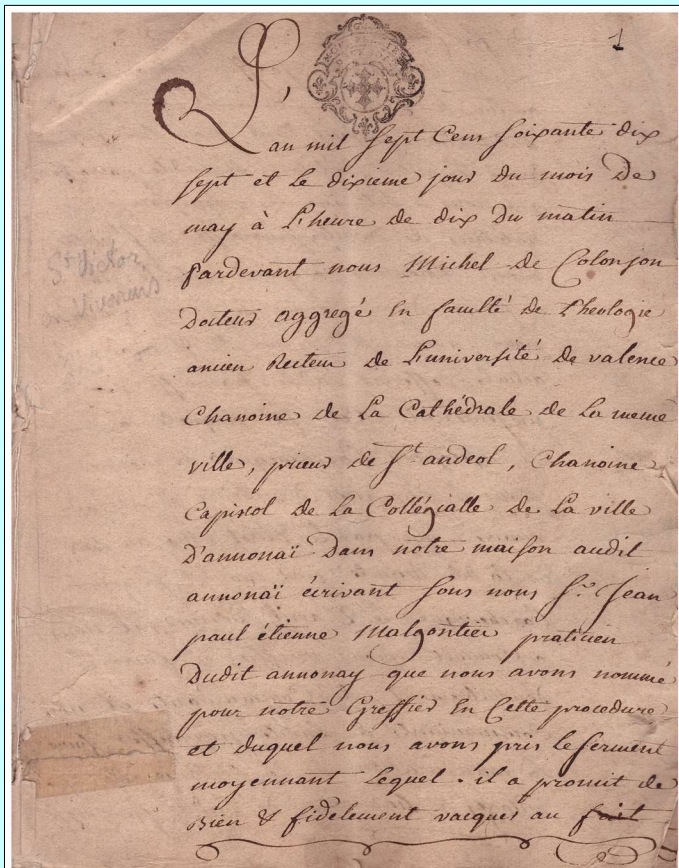 1
L'an mil sept cens soixante dix
sept et le dixieme jour du mois de
may à L'heure de dix du matin
pardevant nous Michel de Colonjon
Docteur aggregé en faculté de theologie
ancien Recteur de L'université de valence
Chanoine de La Cathédrale de La meme
ville, prieur de St andeol, Chanoine
Capiscol de La Collégialle de La ville
D'annonaï Dans notre maison audit
annonaï écrivant sous nous Sr. Jean
paul étienne Malgontier praticien
Dudit annonay que nous avons nommé
pour notre Greffier en Cette procedure
et duquel nous avons pris le serment
moyennant Lequel. il a promit de
Bien & fidelement vacquer au fait
St Victor
Vivarais